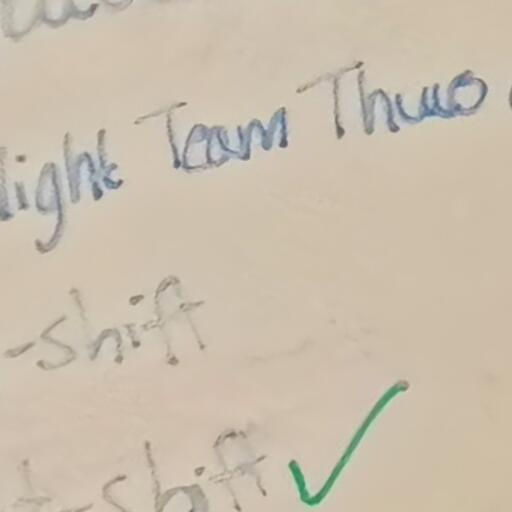 light Team Thuo
-shift
t-shift ✓